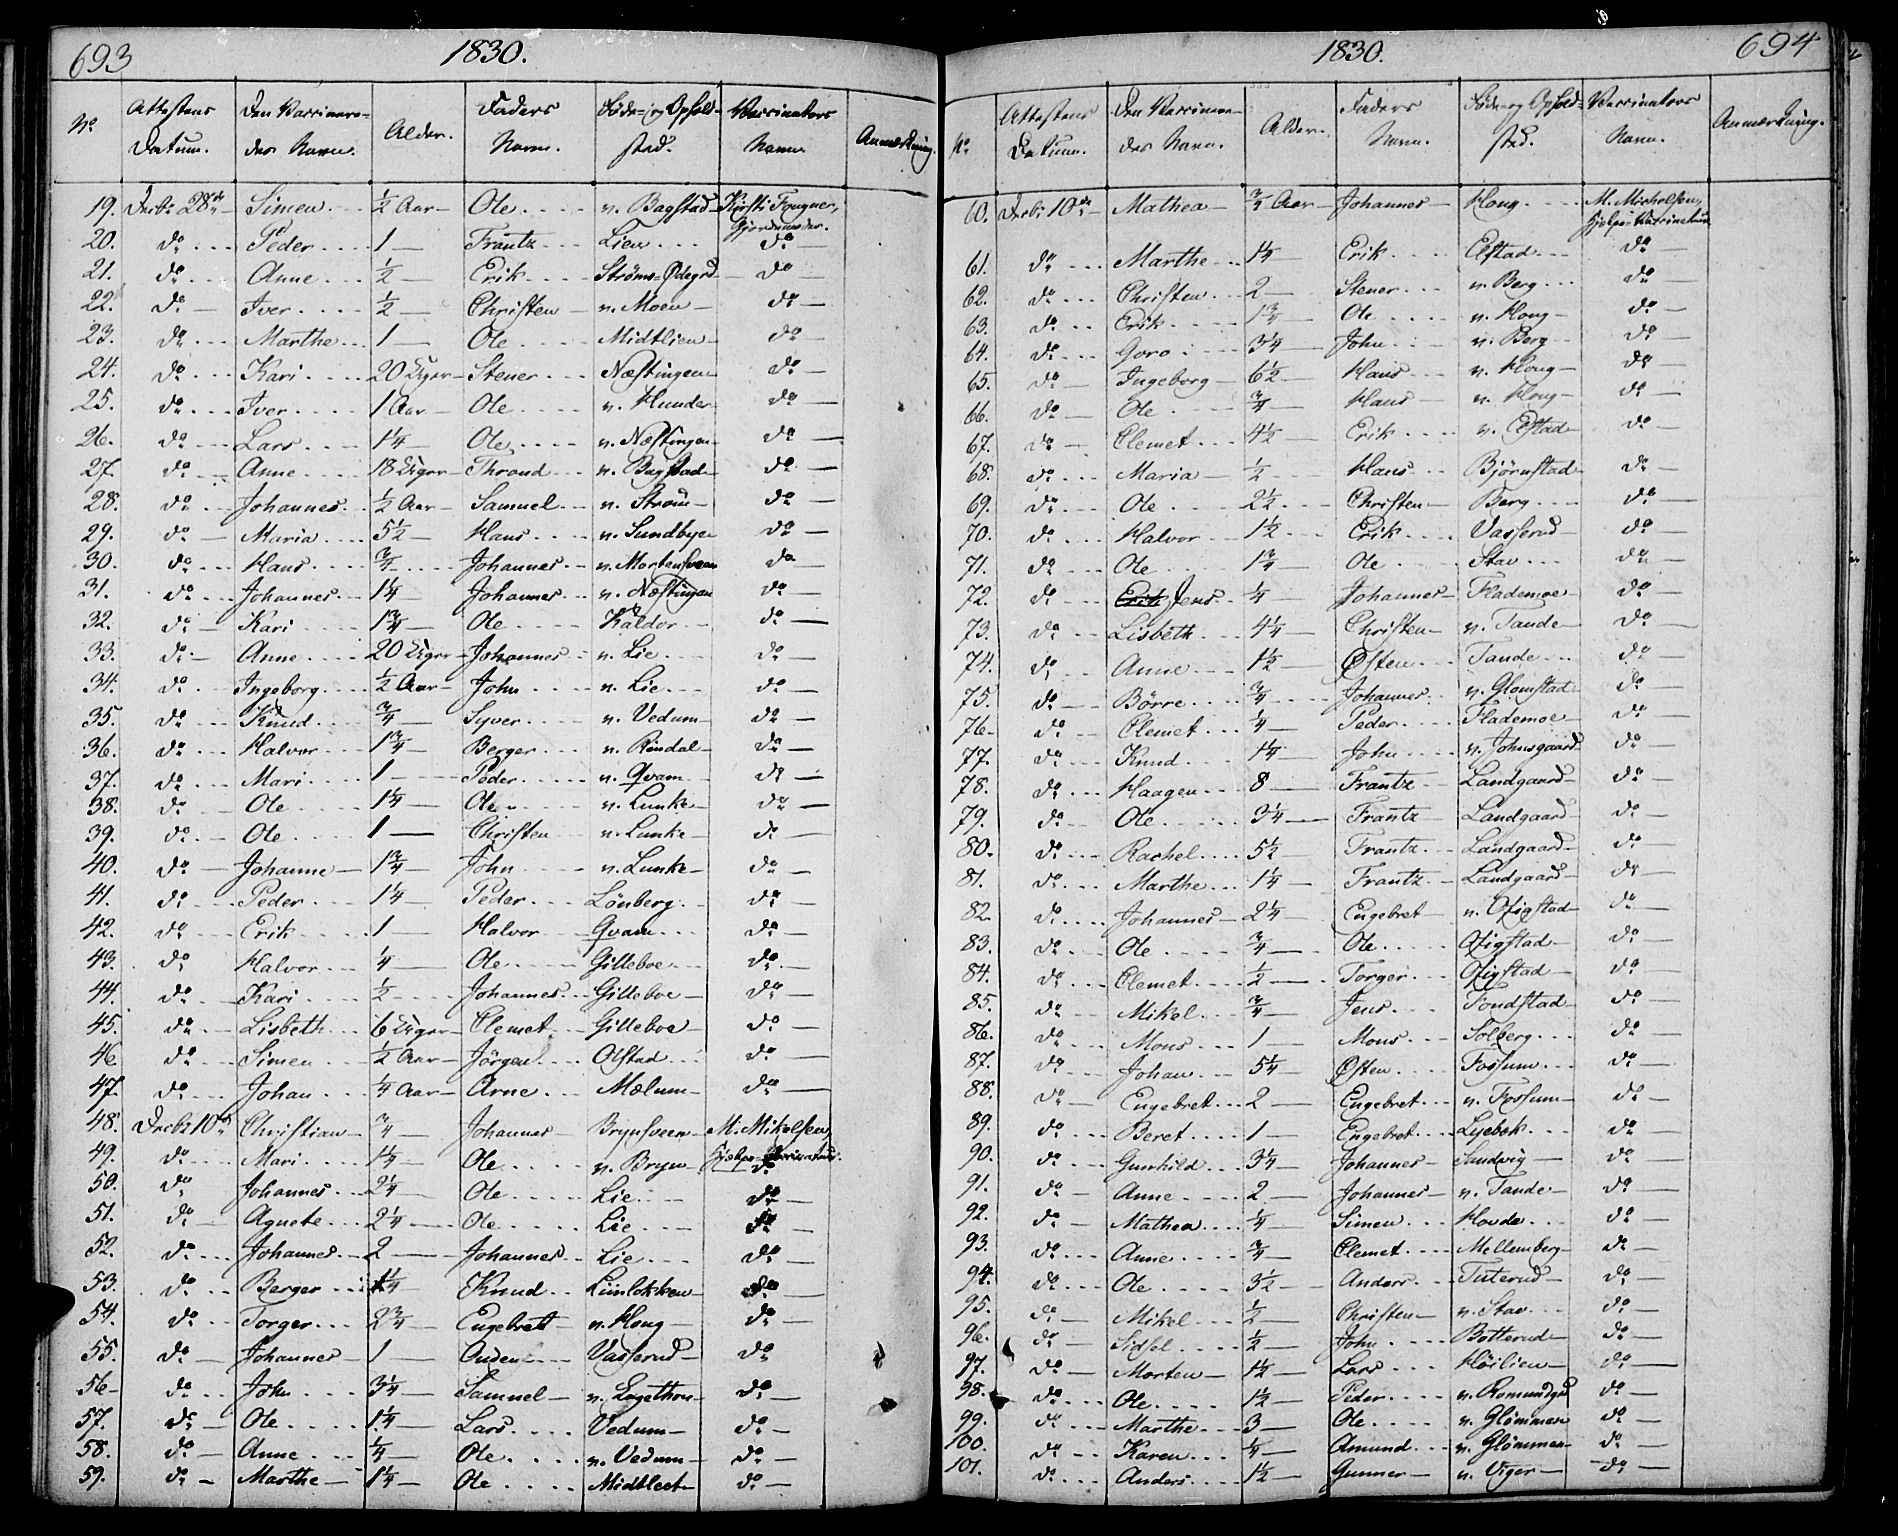 693 1830.
No Attestens Datum. Den Vaccinere- des Navn. Alder. Faders Navn. Föde- og Ophold- sted. Vaccinators Navn. Anmærkning.
19. Decbr 28de Simen ½ Aar Ole n. Bagstad Kirsti Fougner, Gjordemoder.
20. do Peder 1 Frantz Lien do
21. do Anne ½ Erik Ströms-Ødegrd do
22. do Iver ½ Christen n. Moen do
23. do Marthe 1 Ole Midtlien do
24. do Kari 20 Uger Stener Næstingen do
25. do Iver 1 Aar Ole n. Hunder do
26. do Lars 1¼ Ole n. Næstingen do
27. do Anne 18 Uger Thrond n. Bagstad do
28. do Johannes ½ Aar Samuel n. Strøm do
29. do Maria 5½ Hans n. Sundbye do
30. do Hans ¾ Johannes n. Mortensveen do
31. do Johannes 1¼ Johannes n. Næstingen do
32. do Kari 1¾ Ole Kaldor do
33. do Anne 20 Uger Johannes n. Lie do
34. do Ingeborg ½ Aar John n. Lie do
35. do Knud ¾ Syver n. Vedum do
36. do Halvor 1¾ Berger n. Rindal do
37. do Mari 1 Peder n. Qvam do
38. do Ole 1¼ Ole n. Lunke do
39. do Ole 1 Christen n. Lunke do
40. do Johanne 1¾ John n. Lunke do
41. do Peder 1¼ Peder Lönberg do
42. do Erik 1 Halvor Qvam do
43. do Halvor ¼ Ole Gilleboe do
44. do Kari ½ Johannes Gilleboe do
45. do Lisbeth 6 Uger Clemet Gilleboe do
46 do Simen ½ Aar Jörgen Olstad do
47. do Johan ¼ Aar Arne Mælum do
48. Decbr 10de Christian ¾ Johannes Brynsveen M. Mikelsen,
49. do Mari 1¼ Ole n. Bryn Hjelpe-Vaccinateur. do
50. do Johannes 2¼ Ole Lie do
51. do Agnete 2¼ Ole Lie do
52. do Johannes 2 Johannes Lie do
53. do Berger 1¼ Knud Liinløkken do
54. do Torger 2¾ Engebrett n. Houg do
55. do Johannes 1 Ouden Vasserud do
56 do John 3¼ Samuel do
57. do Ole 1¼ Lars Vedum do
58. do Anne ¼ Ole n. Vedum do
59. do Marthe 1¼ Ole Midtleet do
1830. 694
No Attestens Datum. Den Vaccinere- des Navn. Alder. Faders Navn. Föde- og Ophold- sted. Vaccinators Navn. Anmærkning.
60. Decbr 10de Mathea ¾ Aar Johannes Houg M. Michelsen, Hjelpe-Vaccinateur
61. do Marthe 1¼ Erik Elstad do
62. do Christen 2 Stener n. Berg do
63. do Erik 1¾ Ole n. Houg do
64. do Goro 3¼ John n. Berg do
65. do Ingeborg 6½ Hans n. Houg do
66. do Ole ¾ Hans n. Houg do
67. do Clemet 4½ Erik n. Elstad do
68. do Maria ½ Hans Bjørnstad do
69. do Ole 2½ Christen Berg do
70. do Halvor 1½ Erik Vasserud do
71. do Ole 1¾ Ole Stav do
72. do Erik Jens ¼ Johannes Flademoe do
73. do Lisbeth 4¼ Christen n. Tande do
74. do Anne 1½ Østen Tande do
75. do Börre ¾ Johannes n. Glomstad do
76. do Clemet ¼ Peder Flademoe do
77. do Knud 1¼ John n. Johnsgaard do
78. do Haagen 8 Frantz Landgaard do
79. do Ole 3¼ Frantz Landgaard do
80. do Rachel 5½ Frantz Landgaard do
81. do Marthe 1¼ Frantz Landgaard do
82. do Johannes 2¼ Engebret n. Ofigstad do
83. do Ole ¾ Ole Ofigstad do
84. do Clemet ½ Torger Ofigstad do
85. do Mikel ¾ Jens Fondstad do
86. do Mons 1 Mons Solberg do
87. do Johan 5¼ Østen Fossum do
88. do Engebret 2 Engebret n. Fossum do
89. do Beret 1 Engebret Lyebek do
90. do Gunhild 3¼ Johannes Sandvig do
91. do Anne 2 Johannes n. Tande do
92. do Mathea ¼ Simen Hovde do
93. do Anne ¾ Clemet Mellemberg do
94. do Ole 3½ Anders Tuterud do
95. do Mikel ½ Christen n. Stav do
96. do Sidsel ½ John Botterud do
97. do Morten 1½ Lars Höilien do
98. do Ole 1½ Peder n. Romundgrd do
99. do Marthe 3 Ole n. Glömmen do
100. do Karen ¼ Amund n. Glömmen do
101. do Anders 1½ Gunner n. Viger do